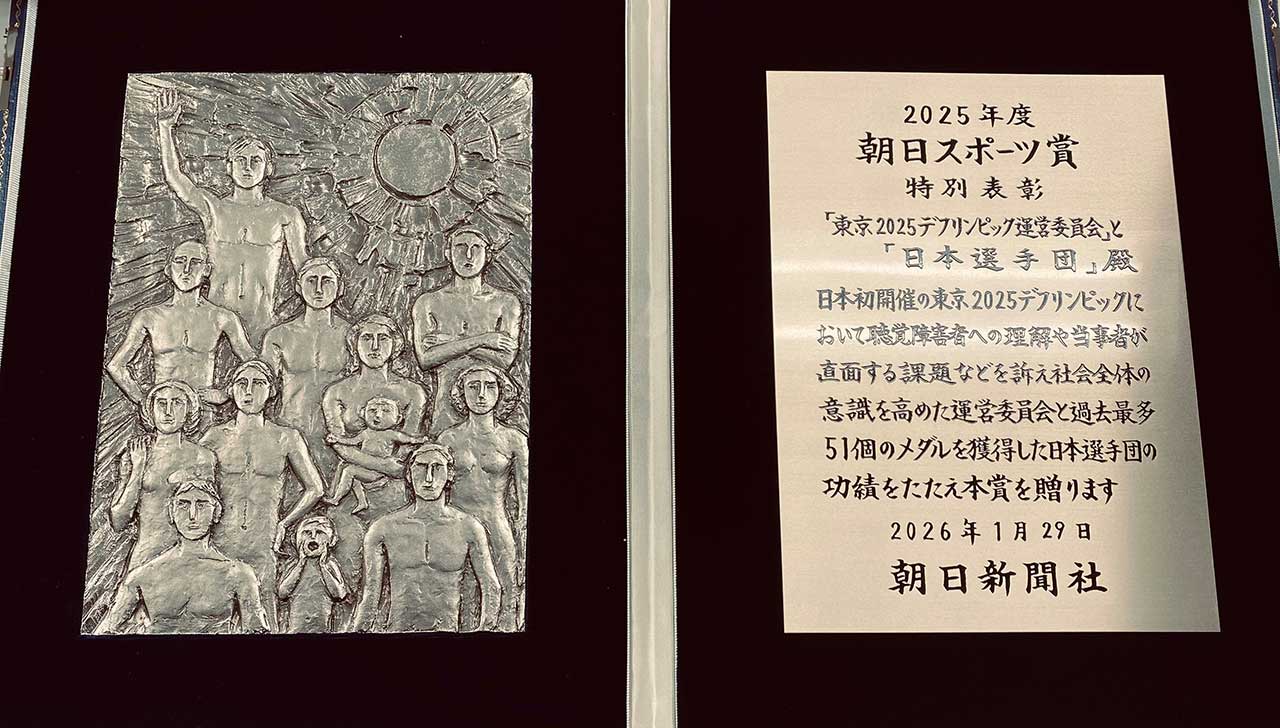 2025年度
朝日スポーツ賞
特別表彰
「東京2025デフリンピック運営委員会」と
「日本選手団」殿
日本初開催の東京2025デフリンピックに
おいて聴覚障害者への理解や当事者が
直面する課題などを訴え社会全体の
意識を高めた運営委員会と過去最多
51個のメダルを獲得した日本選手団の
功績をたたえ本賞を贈ります
2026年1月29日
朝日新聞社